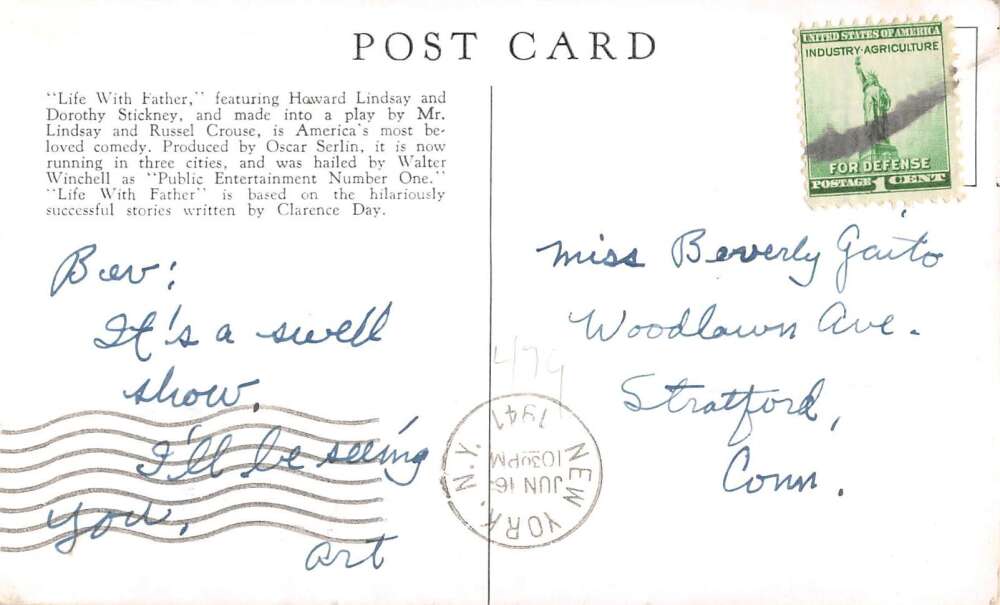 POST CARD
"Life With Father," featuring Howard Lindsay and
Dorothy Stickney, and made into a play by Mr.
Lindsay and Russel Crouse, is America's most be-
loved comedy. Produced by Oscar Serlin, it is now
running in three cities, and was hailed by Walter
Winchell as "Public Entertainment Number One."
"Life With Father" is based on the hilariously
successful stories written by Clarence Day.
Bev:
It's a swell
show.
I'll be seeing
you,
Art
UNITED STATES OF AMERICA
INDUSTRY·AGRICULTURE
FOR DEFENSE
POSTAGE 1 CENT
Miss Beverly Gaito
Woodlawn Ave.
Stratford,
Conn.
479
NEW YORK, N.Y.
JUN 16
1030PM
1941